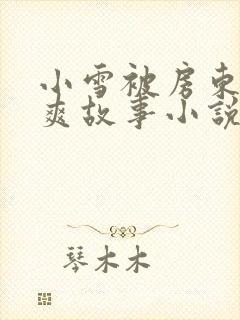 小雪被房东
爽故事小説
琴木木